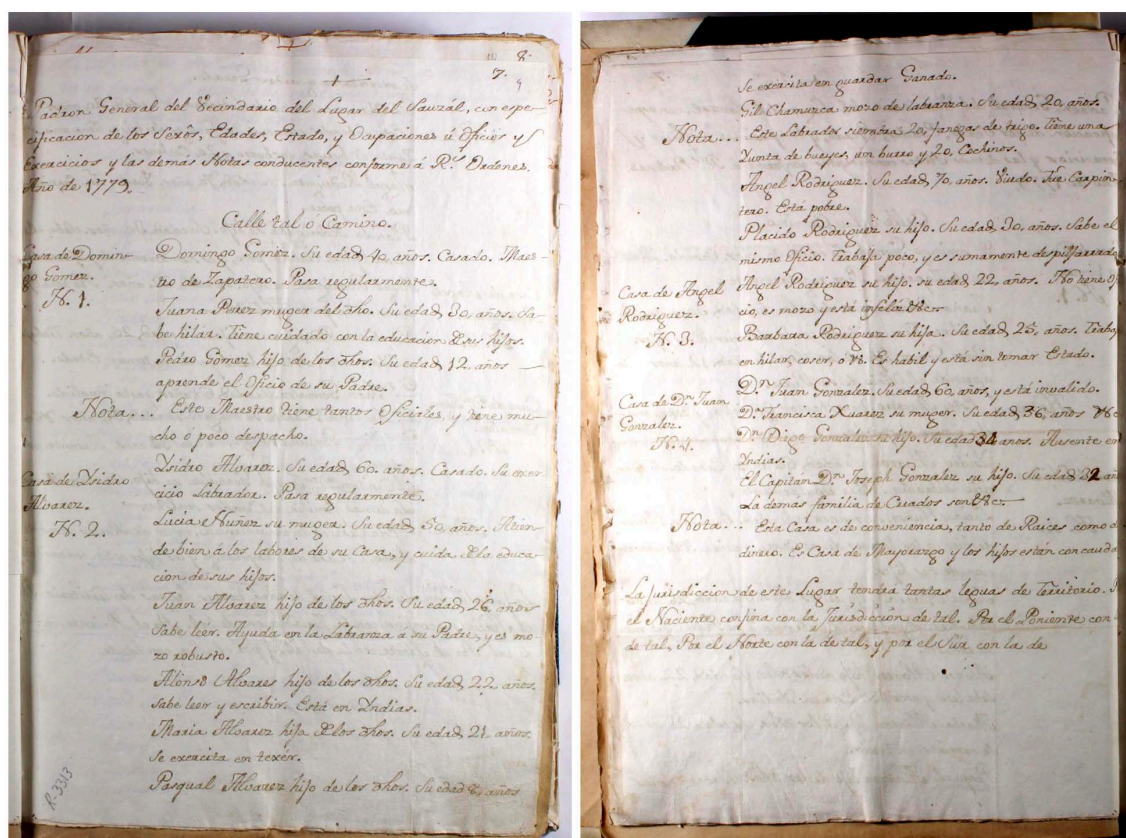 8.
7.
Padron General del Vecindario del Lugar del Sauzál, con espe-
cificacion de los Sexôs, Edades, Estado, y Ocupaciones ú Oficios y
Exercicios y las demás Notas conducentes conforme á Rs. Ordenes.
Año de 1779.
Calle tal ó Camino.
Casa de Domin-
go Gomez.
N. 1.
Domingo Gomez. Su edad, 40, años. Casado. Maes-
tro de Zapatero. Pasa regularmente.
Juana Perez muger del dho. Su edad, 30, años. Sa-
be hilar. Tiene cuidado con la educacion de sus hijos.
Pedro Gomez hijo de los dhos. Su edad, 12, años
aprende el Oficio de su Padre.
Nota... Este Maestro tiene tantos Oficiales, y tiene mu-
cho ó poco despacho.
Casa de Ysidro
Alvarez.
N. 2.
Ysidro Alvarez. Su edad, 60, años. Casado. Su exer-
cicio Labrador. Pasa regularmente.
Lucia Nuñez su muger. Su edad, 50, años. Atien-
de bien á los labores de su Casa, y cuida de la educa-
cion de sus hijos.
Juan Alvarez hijo de los dhos. Su edad, 26, años
sabe leer. Ayuda en la Labranza á su Padre, y es mo-
zo robusto.
Alonso Alvares hijo de los dhos. Su edad, 22, años.
sabe leer y escribir. Está en Yndias.
Maria Alvarez hija de los dhos. Su edad, 21, años.
se exercita en texér.
Pasqual Alvarez hijo de los dhos. Su edad 8, años
R-3313
se exercita en guardar Ganado.
Gil Chamurca mozo de labranza. Su edad, 20, años.
Nota... Este Labrador siembra, 20, fanegas de trigo. Tiene una
Yunta de bueyes, un burro y 20, Cochinos.
Casa de Angel
Rodriguez.
N. 3.
Angel Rodriguez. Su edad, 70, años. Viudo. Fue Carpin-
tero. Está pobre.
Placido Rodriguez su hijo. Su edad, 30, años. Sabe el
mismo Oficio. Trabaja poco, y es sumamente despilfarrado
Angel Rodriguez su hijo. su edad, 22, años. No tiene Ofi
cio, es mozo y está infeliz &c.
Barbara Rodriguez su hija. Su edad, 25, años. Trabaj
en hilar, coser, o &c. Es habil y está sin tomar Estado.
Casa de Dn. Juan
Gonzalez.
N. 4.
Dn. Juan Gonzalez. Su edad, 60, años, y está invalido.
Da. Francisca Xuarez su muger. Su edad, 36, años &c.
Dn. Diego Gonzalez su hijo. Su edad 34 años. Ausente en
Yndias.
El Capitan Dn. Joseph Gonzalez su hijo. Su edad 32 año
La demas familia de Criados son &c.
Nota... Esta Casa es de conveniencia, tanto de Raices como d
dinero. Es Casa de Mayorazgo y los hijos están con cauda
La jurisdiccion de este Lugar tendrá tantas leguas de Territorio. P
el Naciente confina con la Jurisdiccion de tal. Por el Poniente con
de tal, Por el Norte con la de tal, y por el Súr con la de